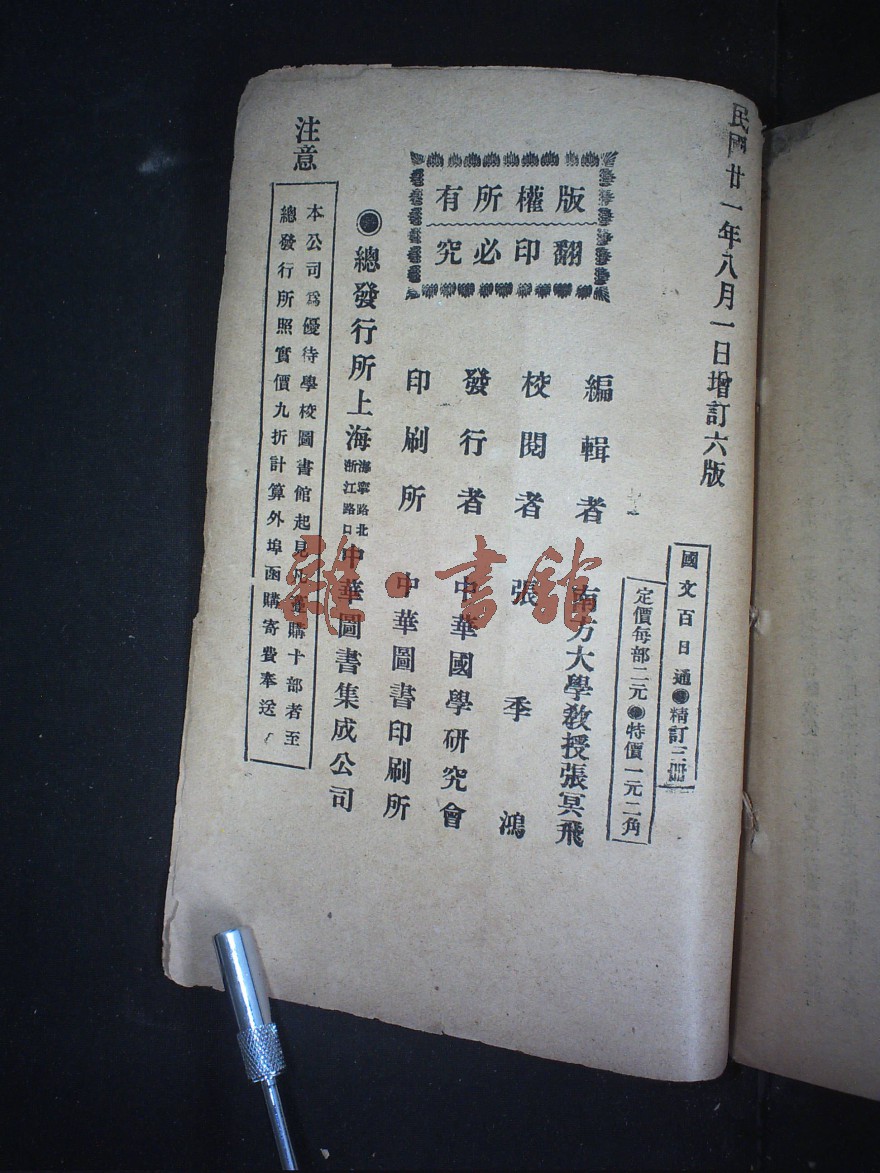 民國廿一年八月一日增訂六版
國文百日通●精訂三冊
定價每部二元●特價一元二角
版權所有
翻印必究
編輯者 南方大學敎授張冥飛
校閱者 張季鴻
發行者 中華國學研究會
印刷所 中華圖書印刷所
●總發行所上海海寧路北浙江路口中華圖書集成公司
注意
本公司爲優待學校圖書館起見凡購十部者至
總發行所照實價九折計算外埠函購寄費奉送
雜·書館